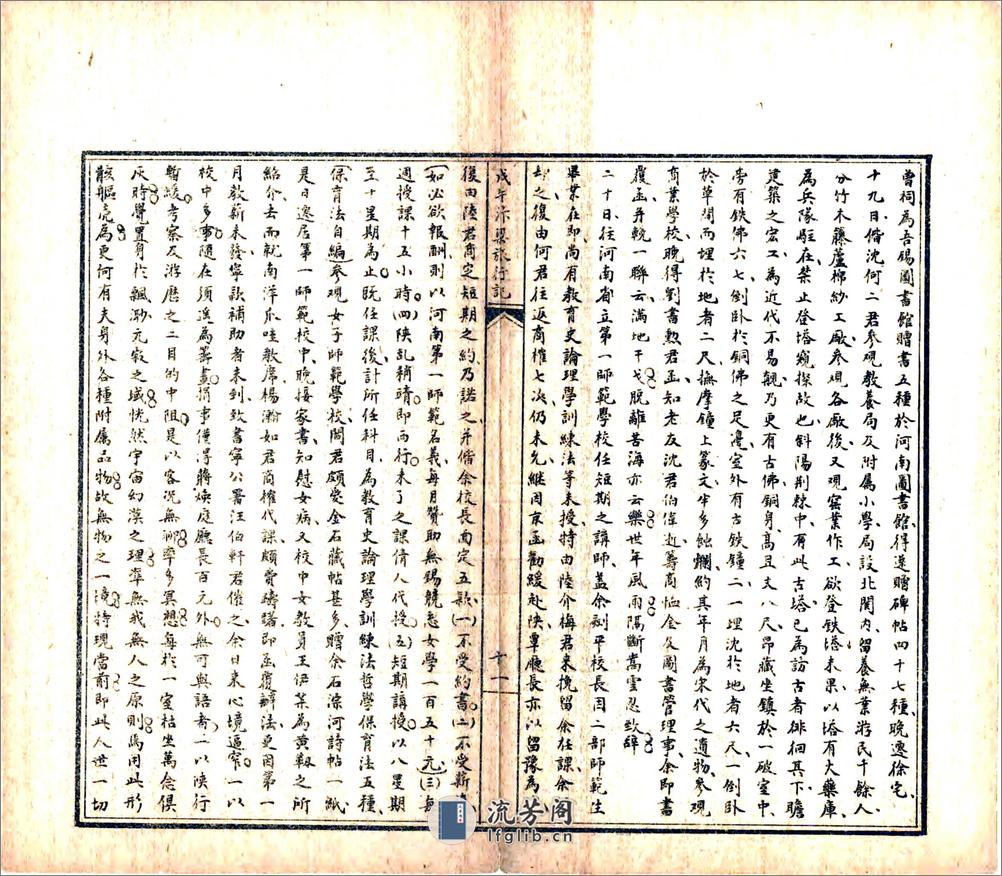 曹祠為吾錫圖書館贈書五種於河南圖書館得還贈碑帖四十七種晚遷徐宅
十九日偕沈何二君參觀教養局及附屬小學局設北關內留養無業游民千餘人
分竹木籐蘆棉紗工廠參觀各廠後又觀窑業作工欲登鐵塔未果以塔有大藥庫
為兵隊駐在禁止登塔窺探故也斜陽荆棘中有此古塔已為訪古者徘徊其下瞻
建築之宏工為近代不易觀乃更有古佛銅身高且丈八尺昂藏坐鎮於一破室中
旁有鐵佛六七倒卧於銅佛之足邊室外有古鉄鐘二一埋沈於地者六尺一倒卧
於草間而埋於地者二尺撫摩鐘上篆文半多蝕爛約其年月為宋代之遺物參觀
商業學校晚得劉書勲君函知老友沈君伯偉逝籌商恤金及圖書管理事余即書
覆函并輓一聯云滿地干戈脫離苦海亦云樂世年風雨隔斷嵩雲忍致辭
二十日往河南省立第一師範學校任短期之講師蓋余到平校長因二部師範生
畢業在即尚有教育史論理學訓練法等未授特由陸介梅君来挽留余任課余
却之復由何君往返商榷七次仍未允継因京函勸緩赴陝覃廳長亦以留豫為
戊午汴梁旅行記
十一
復由陸君商定短期之約乃諾之并偕余校長面定五款(一)不受約書(二)不受薪
(如必欲報酬則以河南第一師範名義每月贊助無錫競志女學一百五十元(三)每
週授課十五小時(四)陝乱稍靖即而行未了之課倩人代授(五)短期講授以八星期
至十星期為止既任課後計所任科目為教育史論理學訓練法哲學保育法五種
(保育法自編)參观女子師範學校閻君頗愛金石藏帖甚多贈余石淙河詩帖一紙
是日遷居第一師範校中晚接家書知慰女病又校中女教員王伊荃為黄靱之所
紹介去而就南洋爪哇教席楊瀚如君商權代課頗費躊躇即函覆辦法更因第一
月教薪未發寧款補助者未到致書寧公署汪伯軒君催之余日来心境逼窄一以
校中多事隨在須遙為籌畫捐事僅得蔣煥庭廳長百元外無可與語者一以陝行
暫緩考察及游歷之二目的中阻是以客況無聊率多冥想每於一室枯坐萬念俱
灰時覺置身於飄渺元寂之域恍然宇宙幻漠之理準無我無人之原則焉用此形
骸軀壳為更何有夫身外各種附属品物故無物之一境特現當前即此人世一切
流芳阁
lfglib.cn